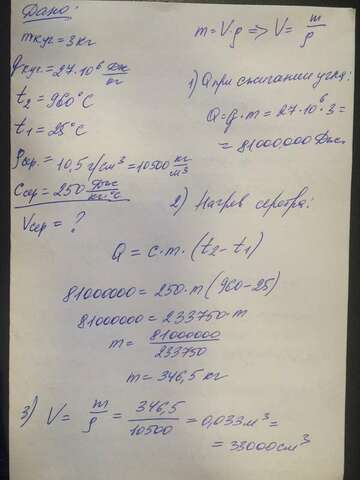 Дано:
m куг = 3 кг
q куг. = 27·10⁶ Дж/кг
t₂ = 960°C
t₁ = 25°C
ρсер. = 10,5 г/см³ = 10500 кг/м³
Cсер = 250 Дж/кг·°C
Vсер = ?
m = Vρ => V = m/ρ
1) Q при сжигании угля:
Q = q·m = 27·10⁶·3 =
= 81000000 Дж.
2) Нагрев серебра:
Q = c·m·(t₂ - t₁)
81000000 = 250·m(960-25)
81000000 = 233750·m
m = 81000000/233750
m = 346,5 кг
3) V = m/ρ = 346,5/10500 = 0,033 м³ =
= 33000 см³